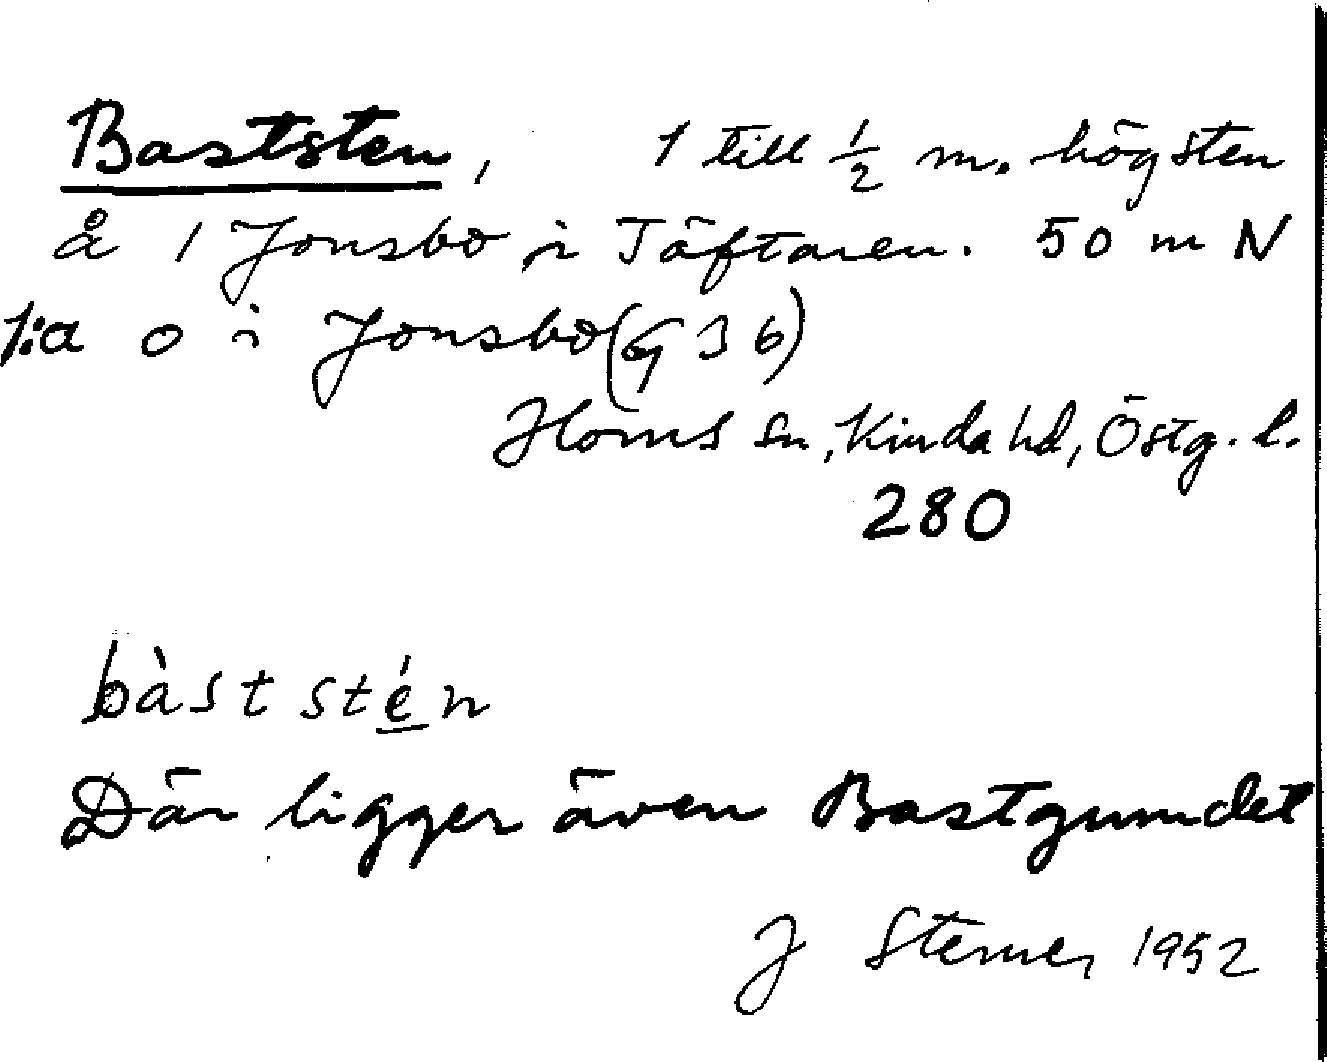 Baststen, 1 till ½ m. hög sten
å 1 Jonsbo i Täftaren. 50 m N
1:a o i Jonsbo (G 36)
Horns sn, Kinda hd, Östg. l.
280
bàst stén
Där ligger även Bastgrundet
J Sterner 1952